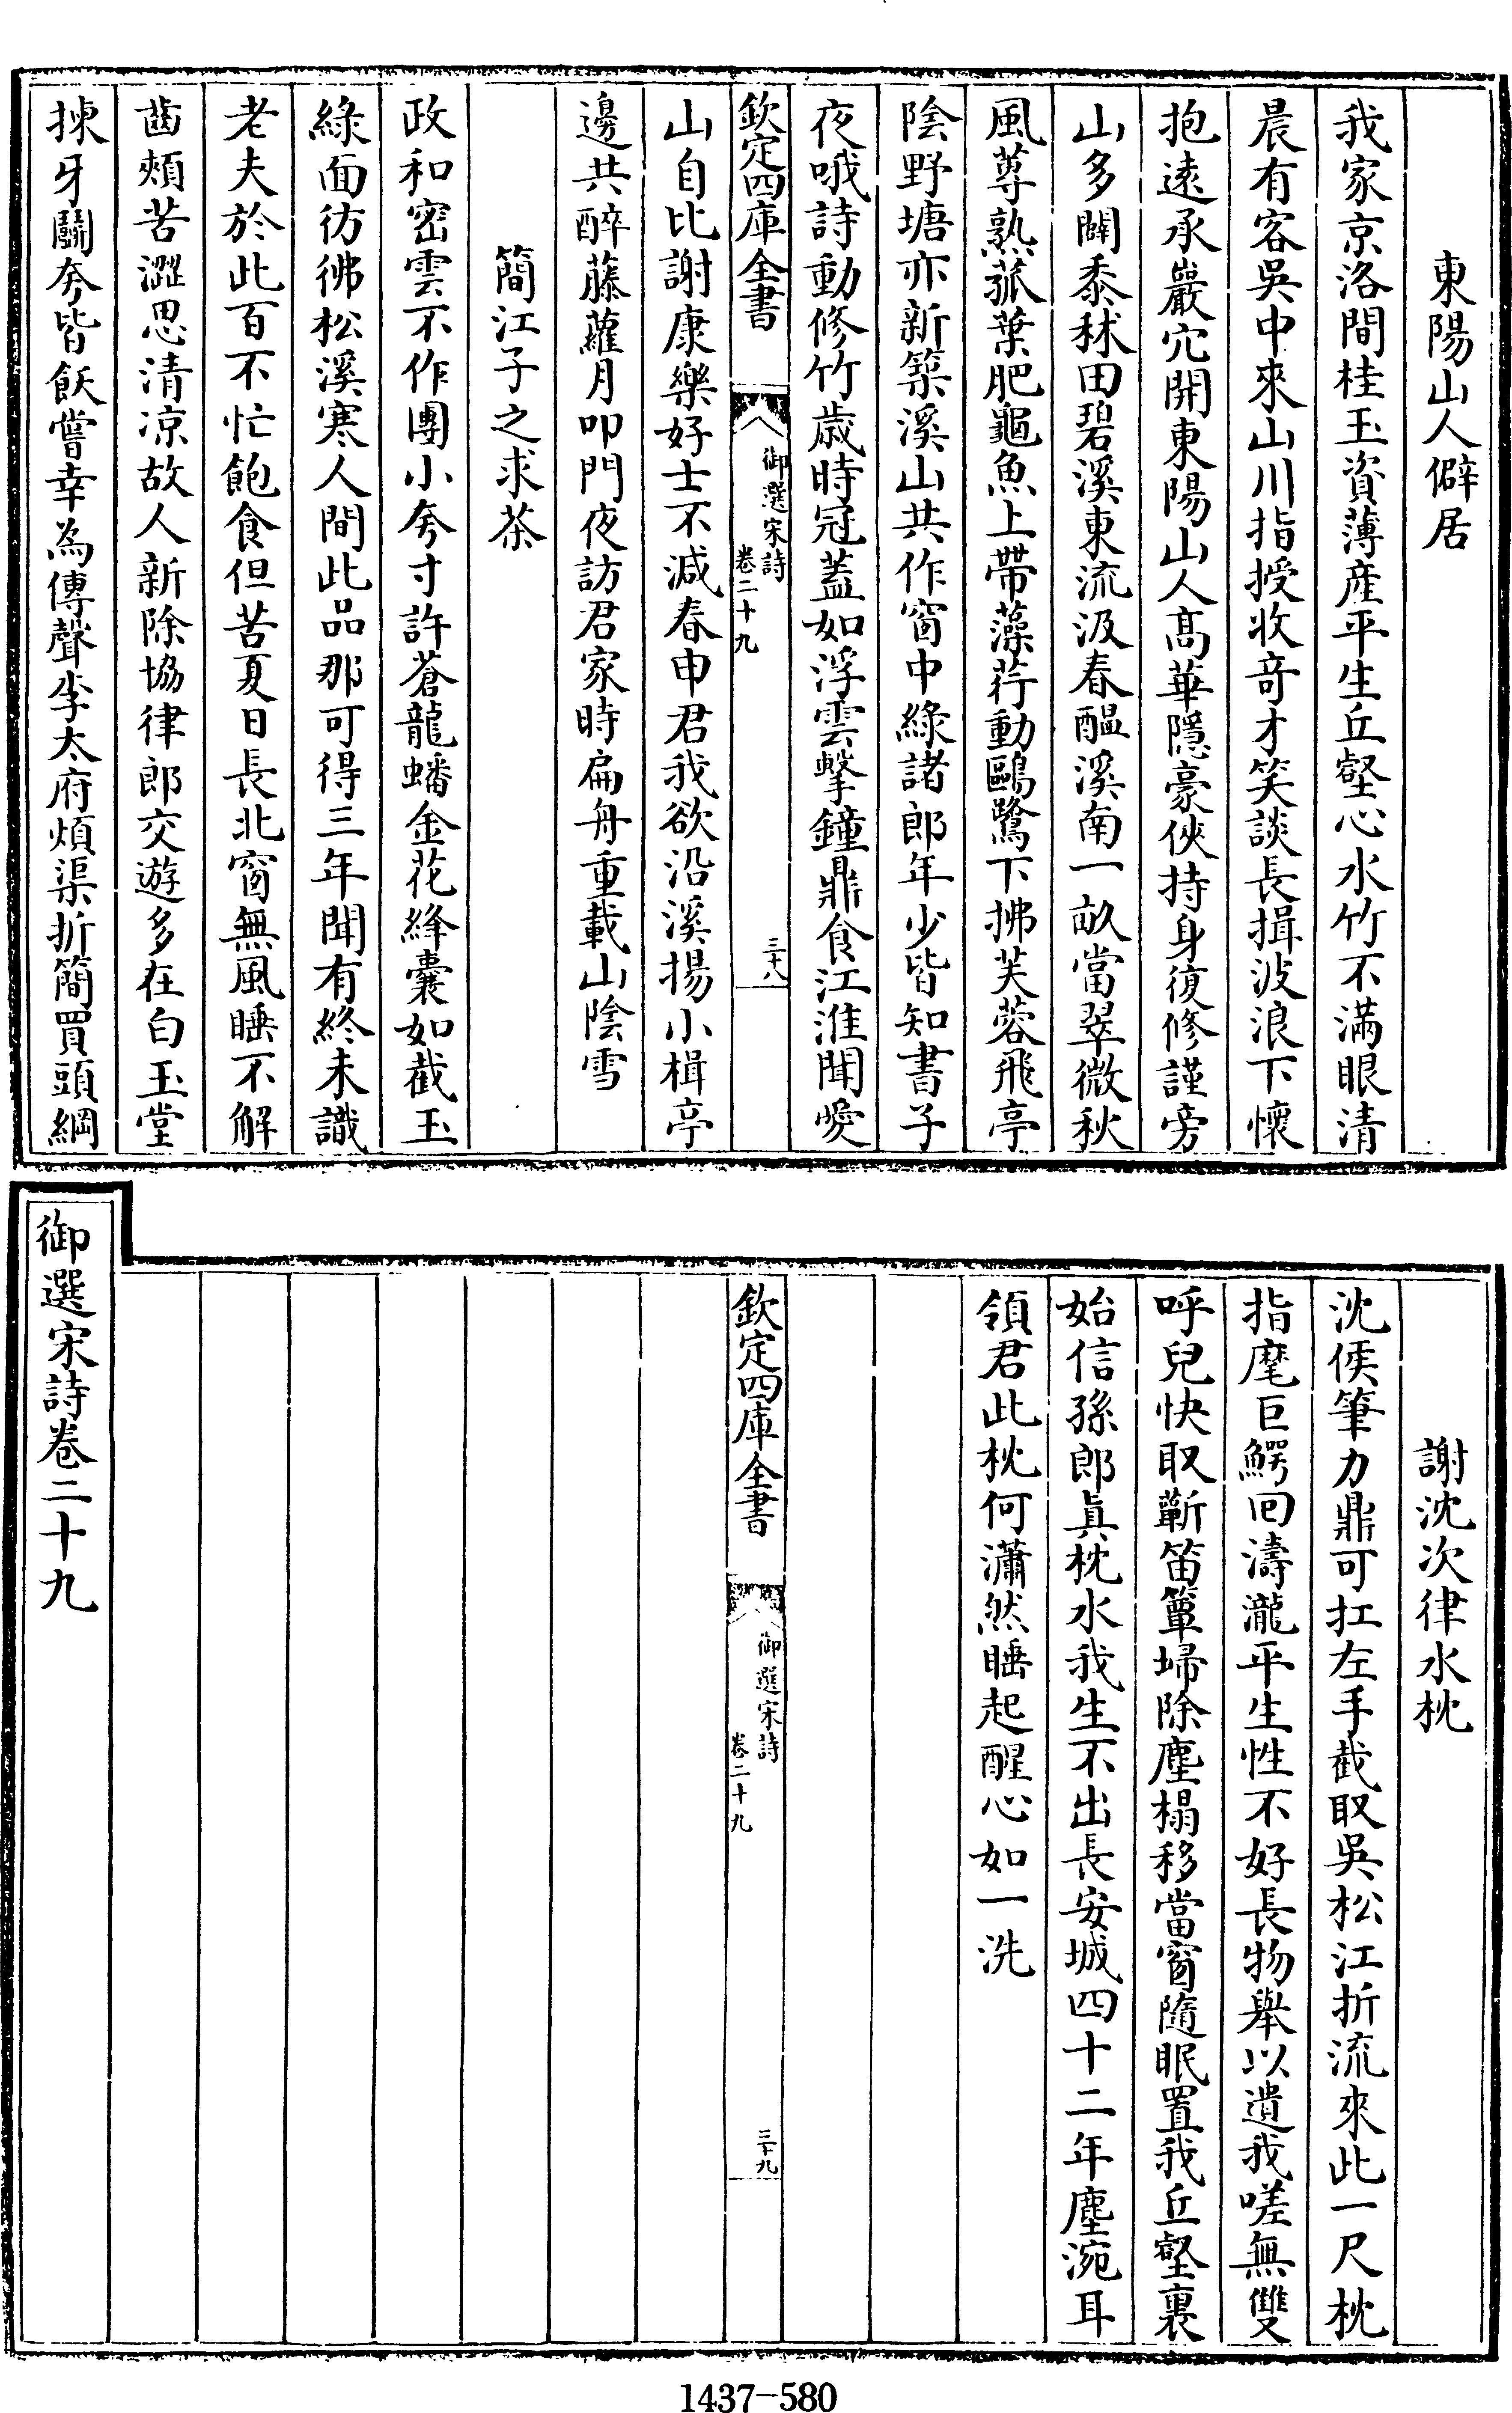 東陽山人僻居
我家京洛間桂玉資薄產平生丘壑心水竹不滿眼清
晨有客吳中來山川指授收竒才笑談長揖波浪下懷
抱遠承巖穴開東陽山人髙華隱豪俠持身復修謹旁
山多闢黍秫田碧溪東流汲春醖溪南一畝當翠微秋
風蓴熟菰葉肥龜魚上帶藻荇動鷗鷺下拂芙蓉飛亭
陰野塘亦新築溪山共作窗中緑諸郎年少皆知書子
夜哦詩動修竹歲時冠蓋如浮雲擊鐘鼎食江淮聞愛
欽定四庫全書
御選宋詩
卷二十九
三十八
山自比謝康樂好士不減春申君我欲沿溪揚小楫亭
邊共醉藤蘿月叩門夜訪君家時扁舟重載山陰雪
簡江子之求茶
政和密雲不作團小夸寸許蒼龍蟠金花絳囊如截玉
緑面彷彿松溪寒人間此品那可得三年聞有終未識
老夫於此百不忙飽食但苦夏日長北窗無風睡不解
齒頰苦澀思清涼故人新除協律郎交遊多在白玉堂
揀牙鬭夯皆飫嘗幸為傳聲李太府煩渠折簡買頭綱
謝沈次律水枕
沈侯筆力鼎可扛左手截取吳松江折流來此一尺枕
指麾巨鰐回濤瀧平生性不好長物舉以遺我嗟無雙
呼兒快取蘄笛簟埽除塵榻移當窗隨眠置我丘壑裏
始信孫郎真枕水我生不出長安城四十二年塵涴耳
領君此枕何瀟然睡起醒心如一洗
欽定四庫全書
御選宋詩
卷二十九
三十九
御選宋詩卷二十九
1437-580